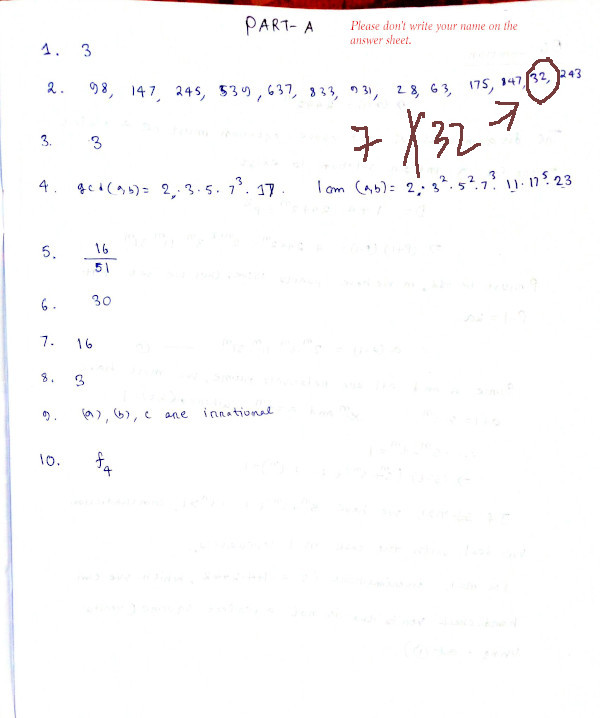 PART-A
Please don't write your name on the
answer sheet.
1. 3
2. 98, 147, 245, 539, 637, 833, 931, 28, 63, 175, 847, 32, 243
7 X 32
3. 3
4. gcd(a,b) = 2 . 3 . 5 . 7³ . 17 . lcm (a,b) = 2 . 3² . 5² . 7³ . 11 . 17⁵ . 23
5. 16/51
6. 30
7. 16
8. 3
9. (a), (b), c are irrational
10. f₄